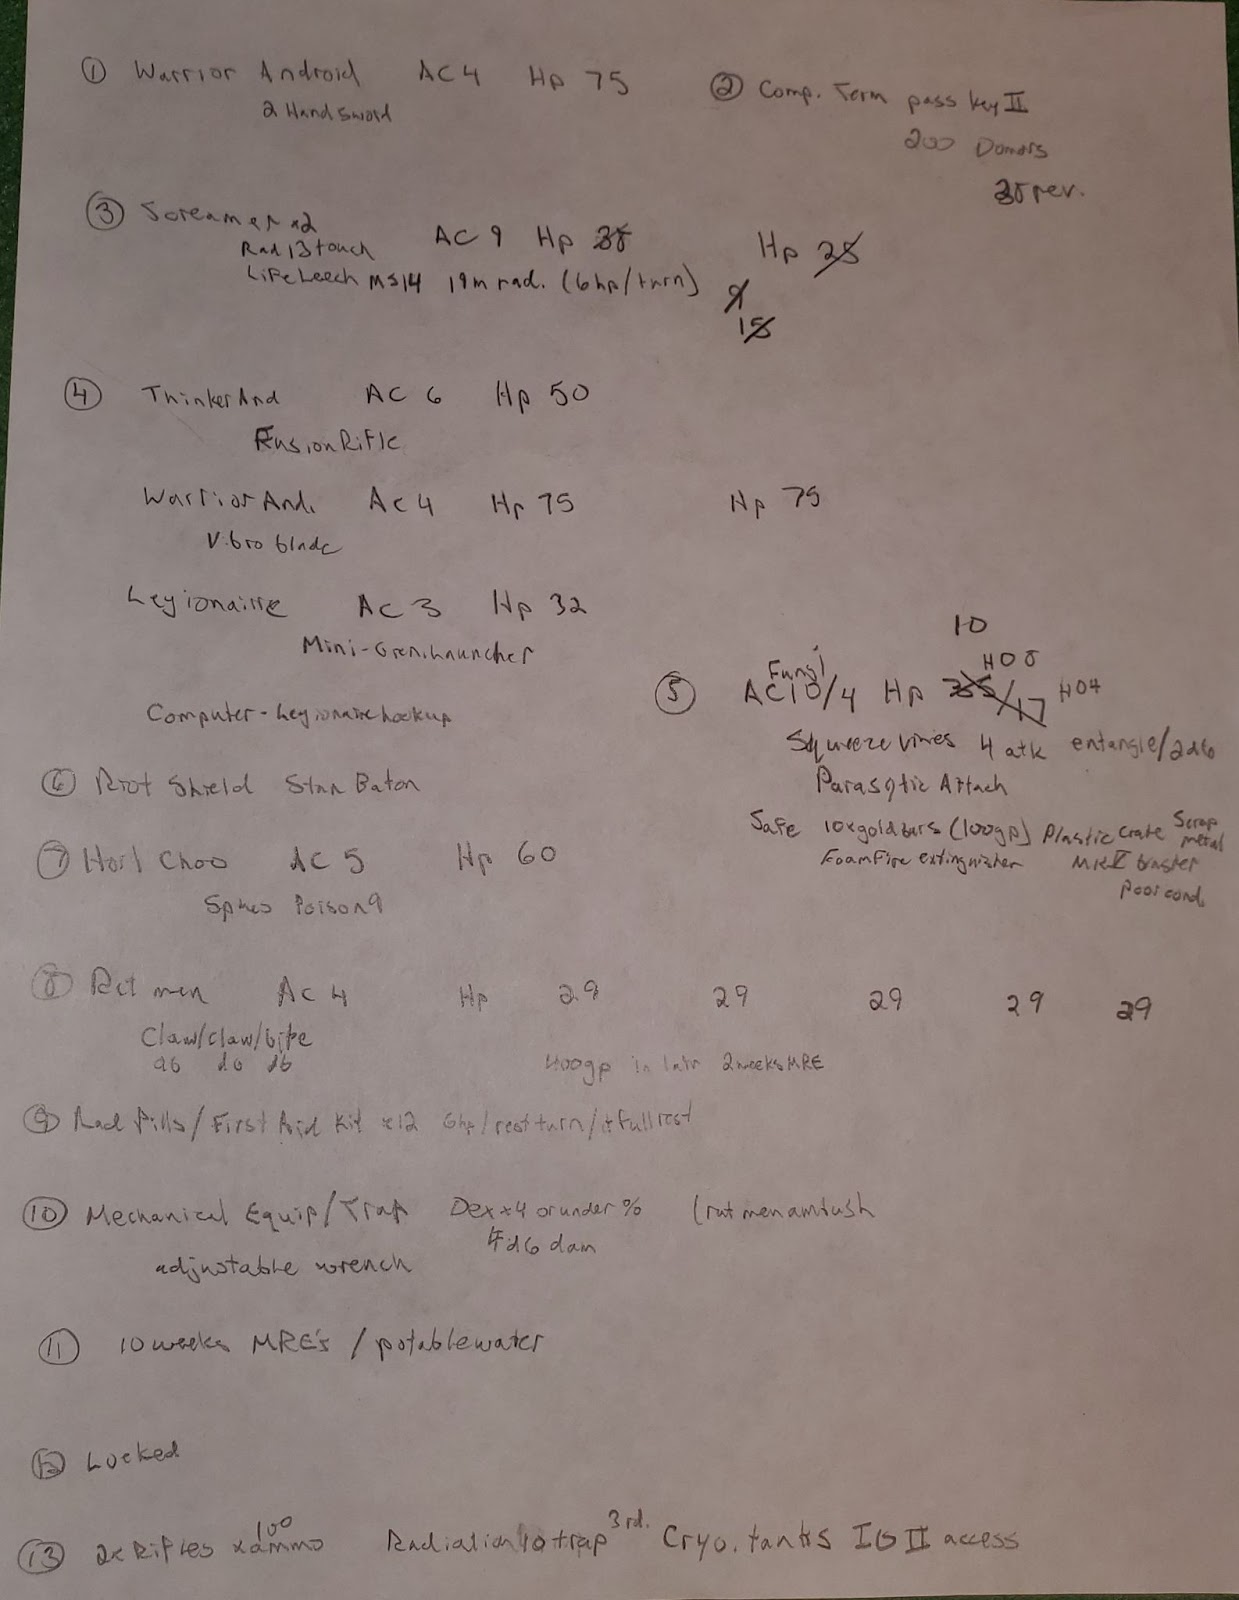 ① Warrior Android AC 4 Hp 75
2 Hand Sword
② Comp. Term pass key II
200 Domars
35 rev.
③ Screamer x2 AC 9 Hp 35 Hp 25
Rad 13 touch
Life Leech MS14 19m rad. (6hp/turn)
9
15
④ Thinker And AC 6 Hp 50
Fusion Rifle
Warrior And. AC 4 Hp 75 Hp 75
Vibro blade
Legionairre AC 3 Hp 32
Mini-Gren. Launcher
Computer - Legionaire hookup
10
Fungi HD5
⑤ AC 10/4 Hp /17 HD4
Squeeze Vines 4 atk entangle/2d6
Parasytic Attach
Safe 10x gold bars (100gp) Plastic crate Scrap metal
Foam Fire extinguisher blaster
Poor cond.
⑥ Riot Shield Stun Baton
⑦ Horl Choo AC 5 Hp 60
Spines Poison 9
⑧ Rat men AC 4 Hp 29 29 29 29 29
Claw/claw/bite
d6 d6 d6
400gp in lair 2 weeks MRE
⑨ Rad Pills / First Aid Kit x12 6hp/rest turn/ full rest
⑩ Mechanical Equip/Trap Dex x4 or under % (rat men ambush
4d6 dam
adjustable wrench
⑪ 10 weeks MRE's / potable water
⑫ Locked
⑬ 2x Rifles x100 ammo Radiation 10 trap 3rd. Cryo. tanks ID II access